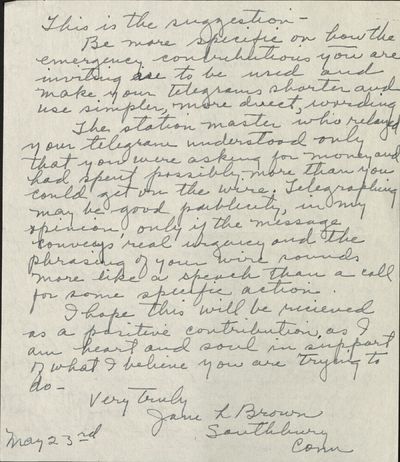 This is the suggestion-
Be more specific on how the
emergency contributions you are
inviting are to be used and
make your telegrams shorter and
use simpler, more direct, wording
The station master who relayed
your telegram understood only
that you were asking for money and
had spent possibly more than you
could get on the wire. Telegraphing
may be good publicity, in my
opinion, only if the message
conveys real urgency and the
phrasing of your wire sounds
more like a speach than a call
for some specific action.
I hope this will be recieved
as a positive contribution, as I
am heart and soul in support
of what I believe you are trying to
do-
Very truly
Jane L Brown
Southbury
Conn
May 23rd